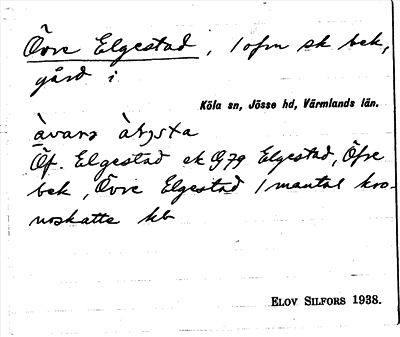 Övre Elgestad, 1 ofm sk bek,
gård i
Köla sn, Jösse hd, Värmlands län.
àvarə
Öf. Elgestad ek G79 Elgestad, Öfre
bek, Övre Elgestad 1 mantal kro-
noskatte kb
ELOV SILFORS 1938.